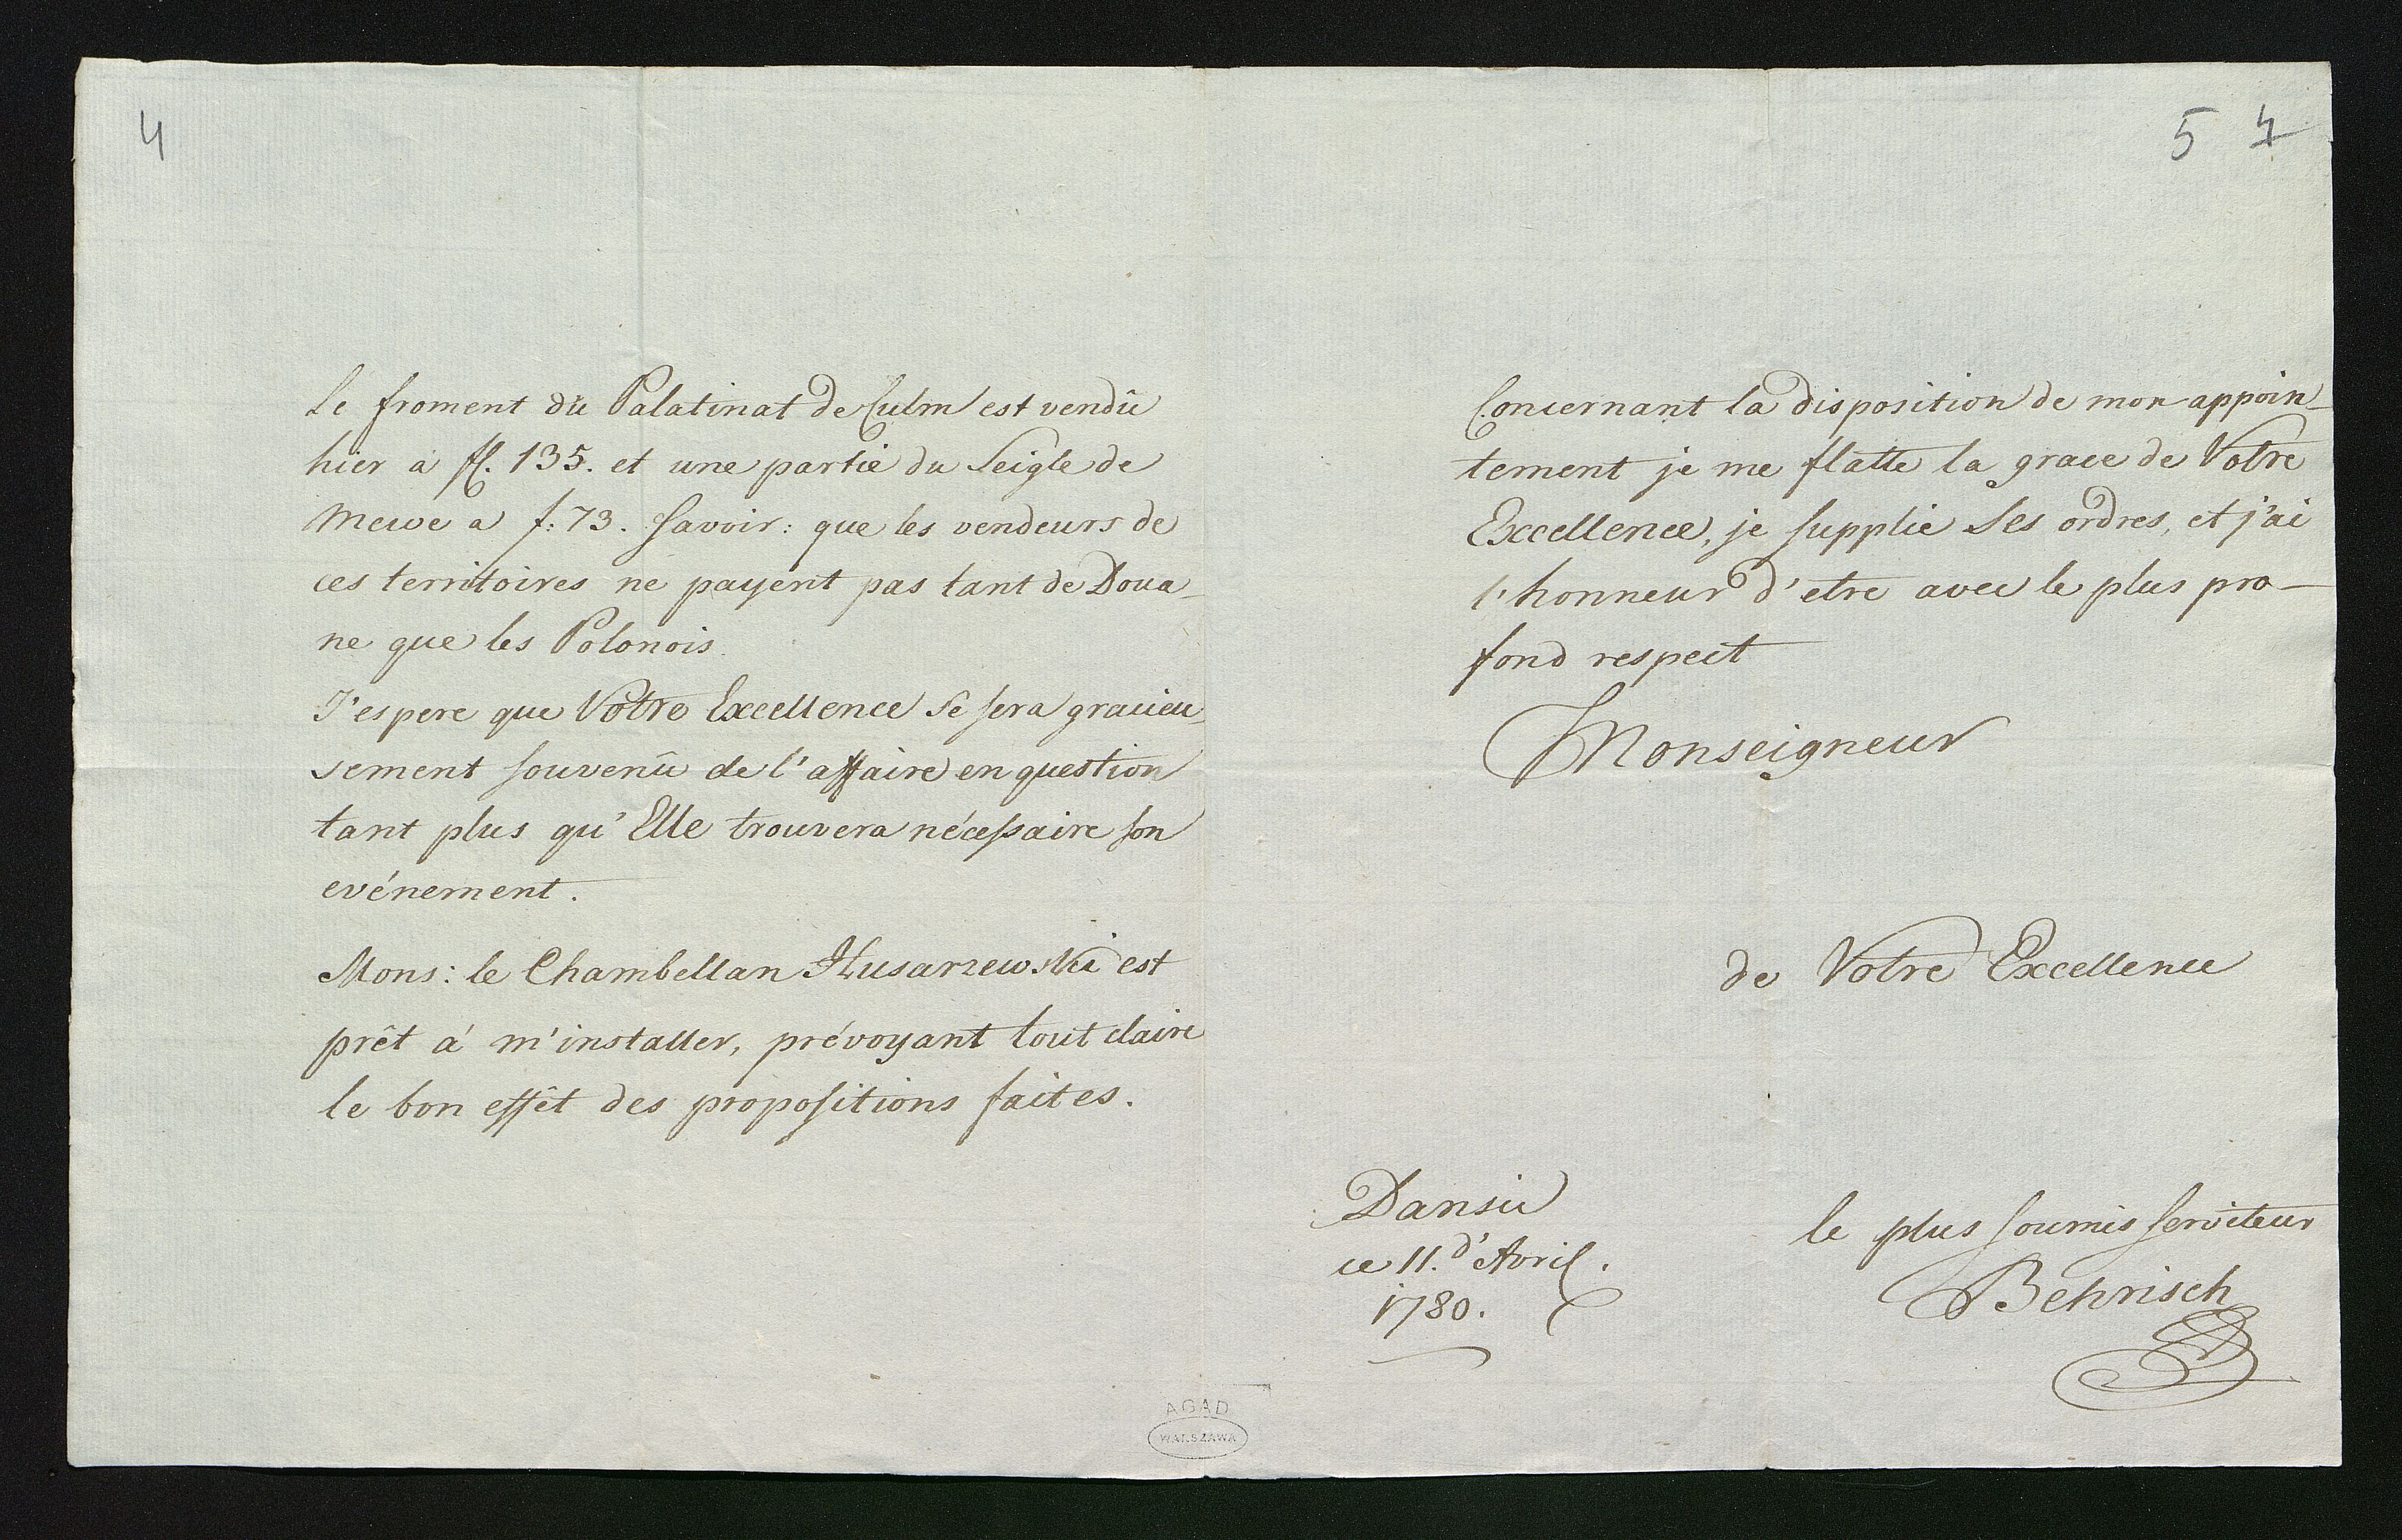 4
Le froment du Palatinat de Culm est vendû
hier à fl. 135. et une partie du Seigle de
Mewe a f: 73. Savoir: que les vendeurs de
ces territoires ne payent pas tant de Doua-
ne que les Polonois.
J'espere que Votre Excellence se sera gracieu-
sement souvenû de l'affaire en question
tant plus qu'Elle trouvera nécessaire son
evénement.
Mons: le Chambellan Husarzewski est
prêt à m'installer, prévoyant tout claire
le bon effêt des propositions faites.
5 4
Concernant la disposition de mon appoin-
tement je me flatte la grace de Votre
Excellence, je supplie Ses ordres, et j'ai
l'honneur d'etre avec le plus pro-
fond respect
Monseigneur
de Votre Excellence
Dansic
ce 11. d'Avril.
1780.
le plus soumis serviteur
Behrisch
AGAD
WARSZAWA